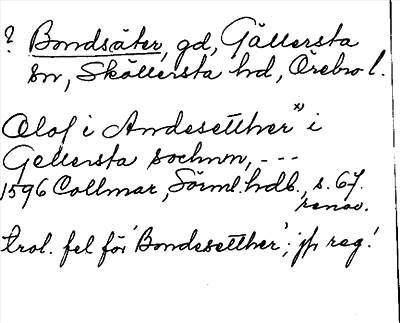 ? Bondsäter, gd, Gällersta
sn, Sköllersta hd, Örebro l.
Olof i Andesetther *) i
Gellersta sochnn, - - -
1596 Collmar, Sörml. hdl 6., s. 67.
renov.
*) trol. fel för 'Bondesetther'; jfr reg!